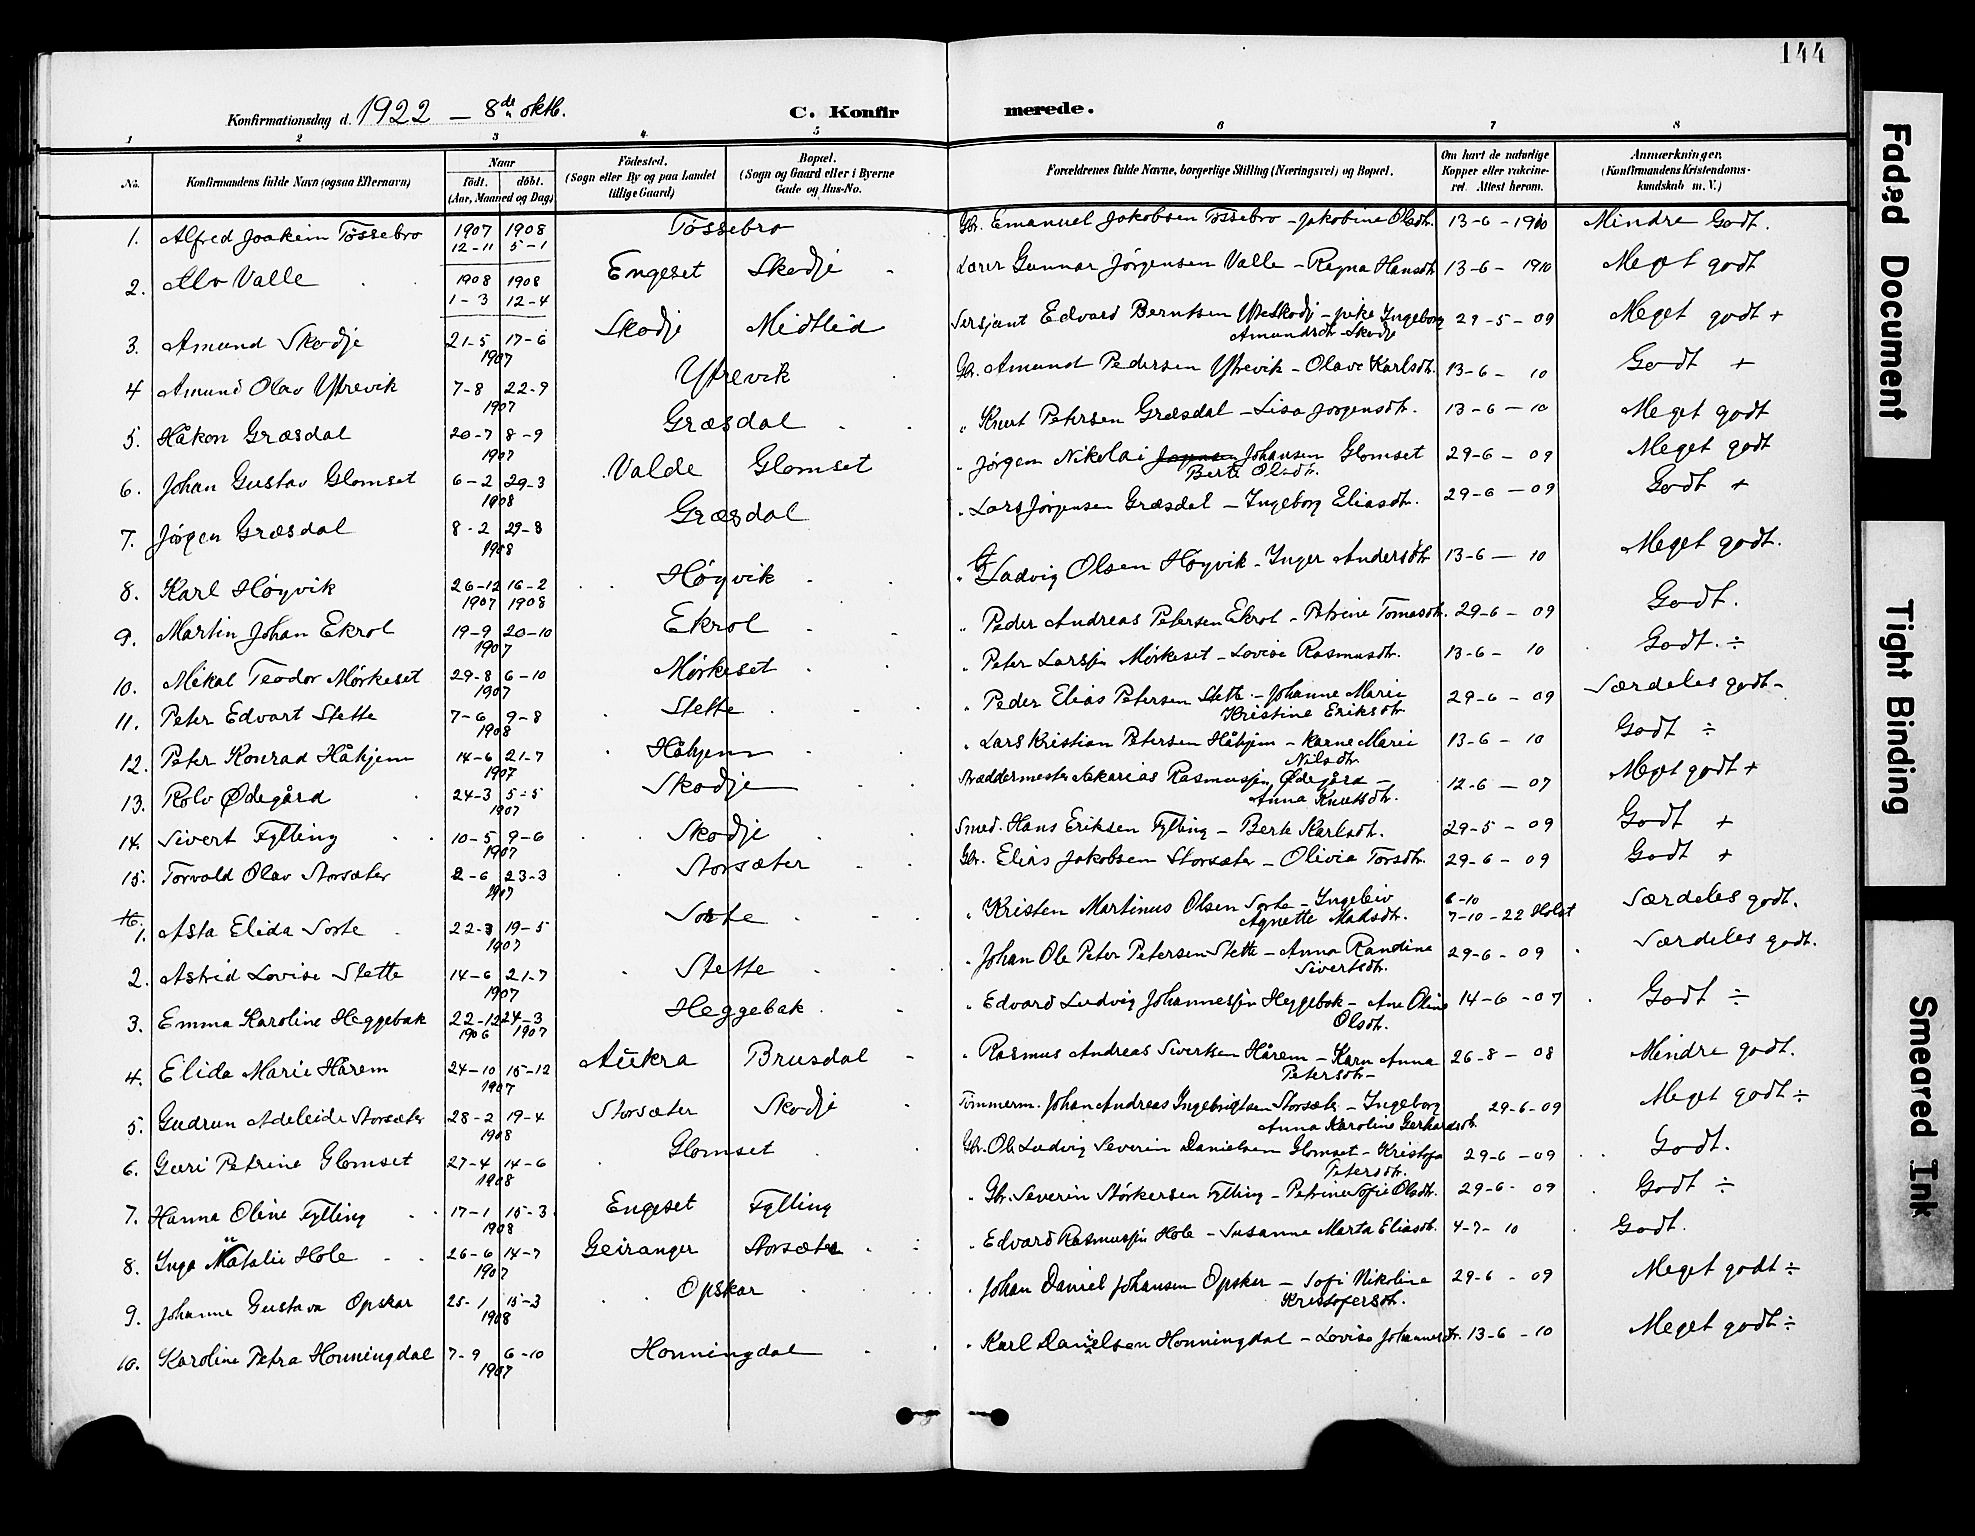 144
Konfirmationsdag d. 1922 – 8de oktb. C. Konfirmerede.
1 2 3 4 5 6 7 8
No. Konfirmandens fulde Navn (ogsaa Efternavn) Naar født. døbt. (Aar, Maaned og Dag) Fødested. (Sogn eller By og paa Landet tillige Gaard) Bopæl. (Sogn og Gaard eller i Byerne Gade og Hus-No. Forældrenes fulde Navne, borgerlige Stilling (Næringsvei) og Bopæl. Om havt de naturlige Kopper eller vakcineret. Attest herom. Anmærkninger. (Konfirmandens Kristendomskundskab m. V.)
1. Alfred Joakim Tøssebro 1907 12-11 1908 5-1 Tøssebro Gbr. Emanuel Jakobsen Tøssebro – Jakobine Olsdtr. 13-6-1910 Mindre Godt.
2. Alv Valle 1908 1-3 1908 12-4 Engeset Skodje Lærer Gunnar Jørgensen Valle – Regna Hansdtr 13-6-1910 Meget godt
3. Amund Skodje 21-5 17-6 1907 Skodje Midtlid Sersjant Edvard Berntsen Ytreskodj – pike Ingeborg Amundsdtr Skodje 29-5-09 Meget godt +
4 Amund Olav Ytrevik 7-8 22-9 1907 Ytrevik Gbr. Amund Pedersen Ytrevik – Olave Karlsdtr. 13-6-10 Godt +
5. Håkon Græsdal 20-7 8-9 1907 Græsdal " Knut Petersen Græsdal – Lisa Jørgensdtr. 13-6-10 Meget godt
6. Johan Gustav Glomset 6-2 29-3 1908 Valde Glomset " Jørgen Nikolai Johansen Glomset Berte Olsdtr. 29-6-09 Meget godt
7. Jørgen Græsdal 8-2 29-8 1908 Græsdal " Lars Jørgensen Græsdal – Ingeborg Eliasdtr. 29-6-09 Godt +
8. Karl Høyvik 26-12 1907 16-2 1908 Høyvik " Ludvig Olsen Høyvik – Inger Andersdtr 13-6-10 Meget godt.
9. Martin Johan Ekrol 19-9 20-10 1907 Ekrol " Peder Andreas Petersen Ekrol – Petrine Tomasdtr. 29-6-09 Godt.
10. Mikal Teodor Mørkeset 29-8 6-10 1907 Mørkeset " Peter Larssen Mørkeset – Lovise Rasmusdtr. 13-6-10 Godt. ÷
11. Peter Edvart Stette 7-6 9-8 1908 Stette " Peder Elias Petersen Stette – Johanne Marie Kristine Eriksdtr 29-6-09 Særdeles godt –
12. Peter Konrad Håhjem 14-6 21-7 1907 Håhjem " Lars Kristian Petersen Håhjem – Karne Marie Nilsdtr 13-6-10 Godt ÷
13. Rolv Ødegård 24-3 5-5 1907 Skodje Sakarias Rasmussen Ødegård – Anna Knutsdtr. 12-6-07 Meget godt +
14. Sivert Fylling 10-5 9-6 1907 Skodje Smed. Hans Eriksen Fylling – Berte Karlsdtr. 29-5-09 Godt +
15. Torvald Olav Storsæter 2-6 23-3 1907 Storsæter Gbr. Elias Jakobsen Storsæter – Olivia Torsdtr. 29-6-09 Godt +
1. Asta Elida Sorte 22-3 19-5 1907 Sorte " Kristen Martinus Olsen Sorte – Ingeleiv Agnette Matsdtr. 6-10 7-10-22 Holst Særdeles godt.
2. Astrid Lovise Stette 14-6 21-7 1907 Stette " Johan Ole Peter Petersen Stette – Anna Randine Sivertsdtr. 29-6-09 Særdeles godt.
3. Emma Karoline Heggebak 22-12 1906 24-3 1907 Heggebak " Edvard Ludvig Johannessen Heggebak – Ane Oline Olsdtr. 14-6-07 Godt ÷
4. Elida Marie Hårem 24-10 15-12 1907 Aukra Brusdal " Rasmus Andreas Sivertsen Hårem – Karn Anna Petersdtr – 26-8-08 Mindre godt.
5. Gudrun Adeleide Storsæter 28-2 19-4 1908 Storsæter Skodje Tømmerm. Johan Andreas Ingebrigtsen Storsæter – Ingeborg Anna Karoline Gerhardsdtr 29-6-09 Meget godt ÷
6. Guri Petrine Glomset 27-4 14-6 1908 Glomset Gbr. Ole Ludvig Severin Danielsen Glomset – Kristofa Petersdtr. 29-6-09 Godt.
7. Hanna Oline Fylling 17-1 15-3 1908 Engeset Fylling " Gbr. Severin Størkersen Fylling – Petrine Sofie Olsdtr. 29-6-09 Godt ÷
8. Inga Natalie Hole 26-6 14-7 1907 Geiranger Storsæter " Edvard Rasmussen Hole – Susanne Marta Eliasdtr. 4-7-10 Godt.
9. Johanne Gustava Opskar 25-1 15-3 1908 Opskar " Johan Daniel Johansen Opskar – Sofi Nikoline Kristofersdtr. 29-6-09 Meget godt ÷
10. Karoline Petra Honningdal 7-9 6-10 1907 Honningdal " Karl Danielsen Honningdal – Lovise Johannesdtr. 13-6-10 Meget godt ÷
Faded Document
Tight Binding
Smeared Ink